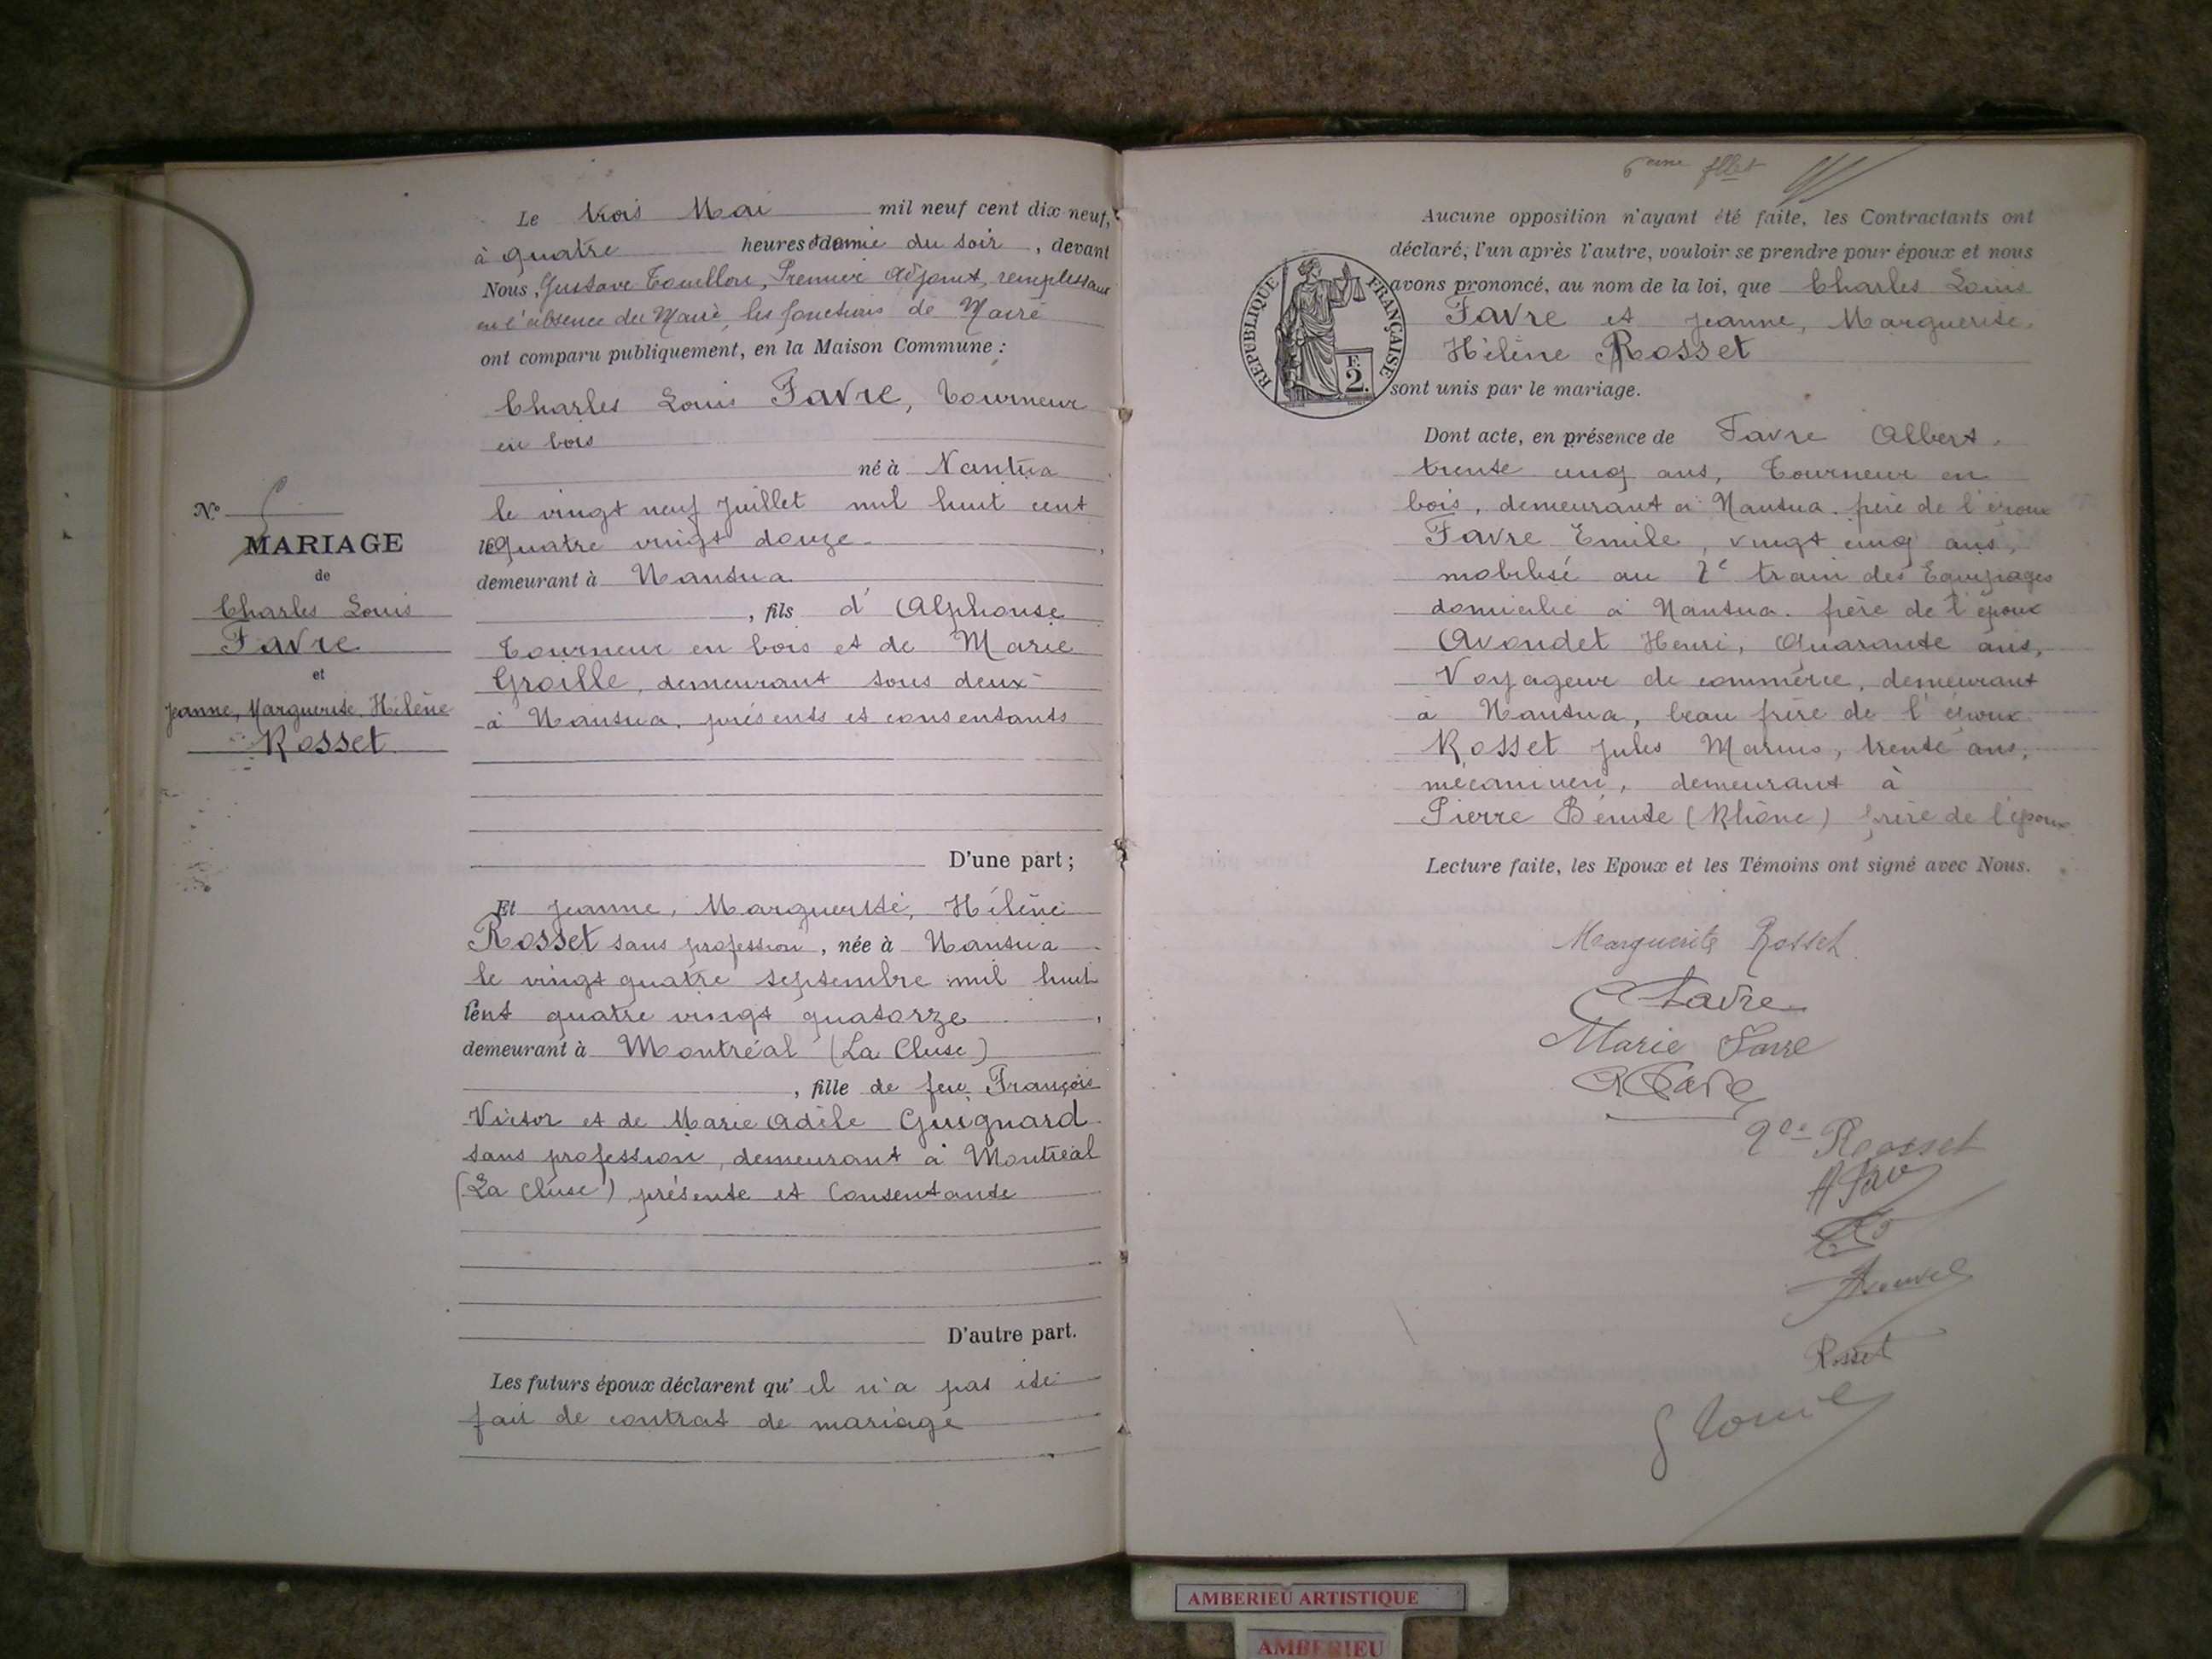 Le trois Mai mil neuf cent dix neuf,
à quatre heures & demie du soir, devant
Nous, Gustave Touillon, Premier Adjoint, remplissant
en l'absence du Maire, les fonctions de Maire
ont comparu publiquement, en la Maison Commune :
Charles Louis Favre, Tourneur
en bois
né à Nantua
le vingt neuf Juillet mil huit cent
quatre vingt douze
demeurant à Nantua
, fils d'Alphonse
Tourneur en bois et de Marie
Groille, demeurant tous deux
à Nantua, présents et consentants
D'une part ;
N°
MARIAGE
de
Charles Louis
Favre
et
Jeanne, Marguerite, Hélène
Rosset
Et Jeanne, Marguerite, Hélène
Rosset sans profession, née à Nantua
le vingt quatre septembre mil huit
cent quatre vingt quatorze,
demeurant à Montréal (La Cluse)
, fille de feu François
Victor et de Marie Adèle Guignard
sans profession, demeurant à Montréal
(La Cluse) présente et Consentante
D'autre part.
Les futurs époux déclarent qu'il n'a pas été
fait de contrat de mariage
6eme fllet
Aucune opposition n'ayant été faite, les Contractants ont
déclaré, l'un après l'autre, vouloir se prendre pour époux et nous
avons prononcé, au nom de la loi, que Charles Louis
Favre et Jeanne, Marguerite,
Hélène Rosset
sont unis par le mariage.
RÉPUBLIQUE FRANÇAISE
F.
2.
Dont acte, en présence de Favre Albert,
trente cinq ans, Tourneur en
bois, demeurant à Nantua. frère de l'époux
Favre Emile, vingt cinq ans,
mobilisé au 2e train des Equipages
domicilié à Nantua. frère de l'époux
Avondet Henri, Quarante ans,
Voyageur de commerce, demeurant
à Nantua, beau frère de l'époux
Rosset Jules Marius, trente ans,
mécanicien, demeurant à
Pierre Bénite (Rhône) frère de l'épouse
Lecture faite, les Epoux et les Témoins ont signé avec Nous.
Marguerite Rosset
C Favre
Marie Favre
A Favre
Rosset
Rosset
AMBERIEU ARTISTIQUE
AMBERIEU